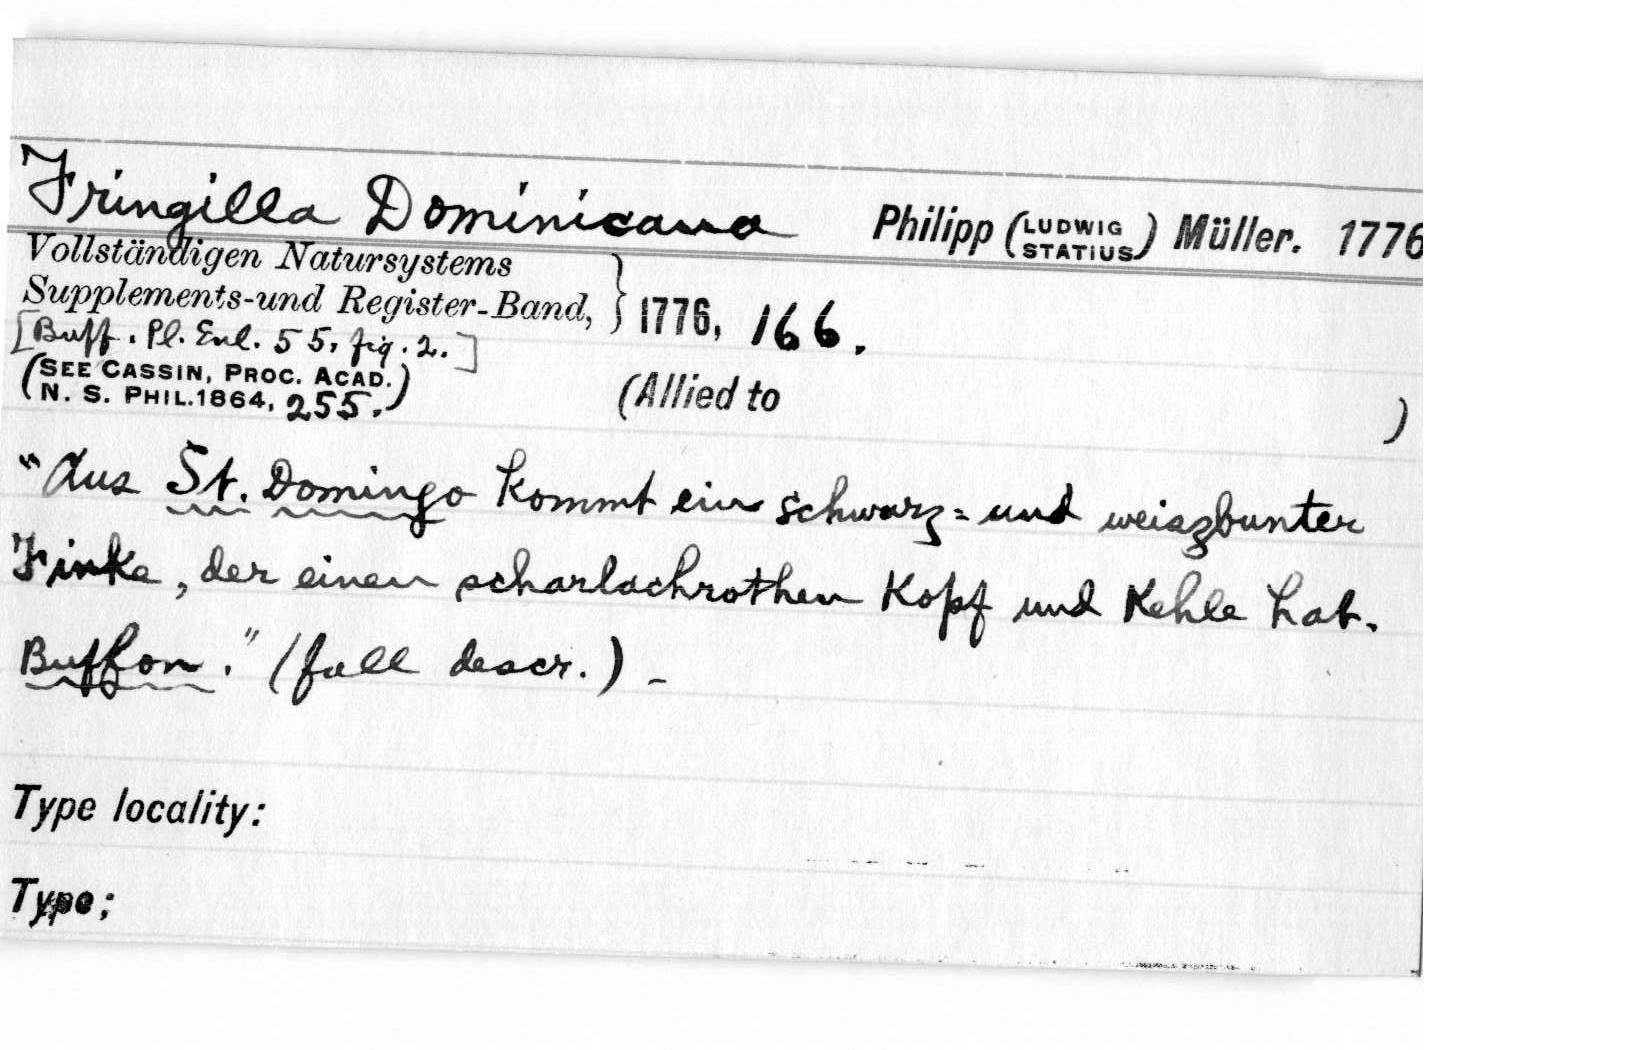 Fringilla Dominicana Philipp (LUDWIG STATIUS) Müller. 1776
Vollständigen Natursystems
Supplements-und Register-Band, } 1776, 166.
[Buff. Pl. Enl. 55, fig. 2.]
(SEE CASSIN, PROC. ACAD.
N. S. PHIL. 1864, 255.)
(Allied to )
"Aus St. Domingo kommt ein schwarz= und weiszbunter
Finke, der einen scharlachrothen Kopf und Kehle hat.
Buffon." (full descr.) -
Type locality:
Type;